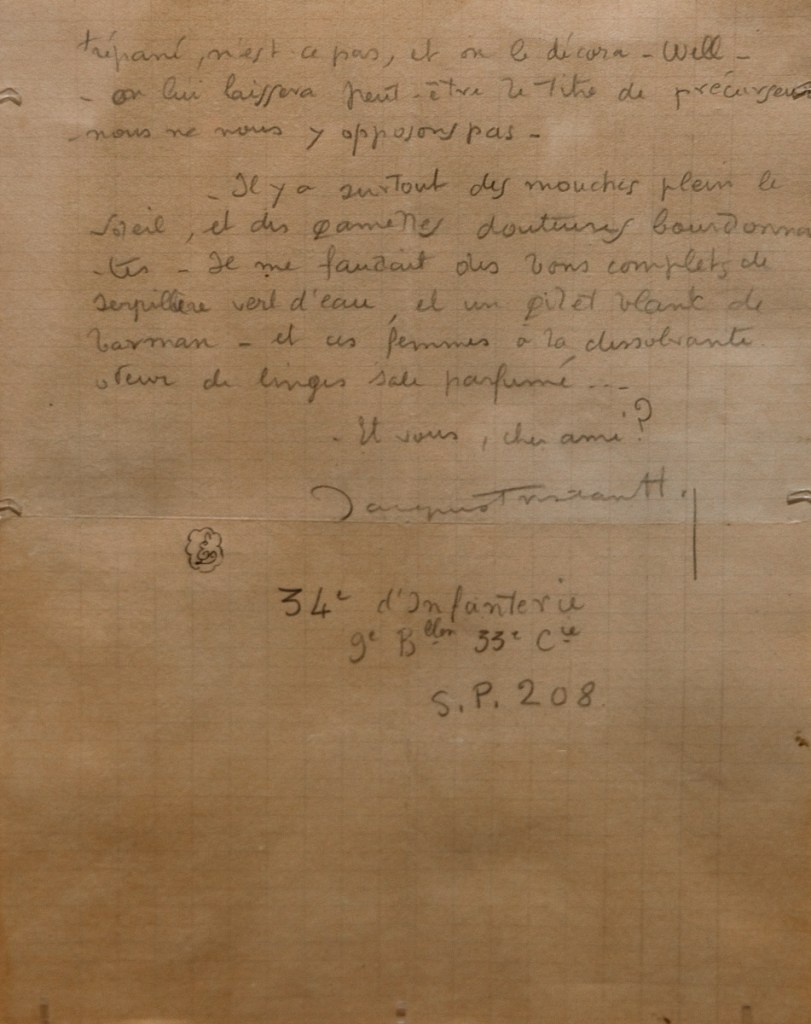 trépané, n'est ce pas, et on le décora - Well -
- on lui laissera peut-être le titre de précurseur
- nous ne nous y opposons pas -
- Il y a surtout des mouches plein le
soleil, et des gamelles douteuses bourdonnan
-tes - Il me faudrait des bons complets de
serpillière vert d'eau, et un gilet blanc de
barman - et ces femmes à la dissolvante
odeur de linges sale parfumé ...
- Et vous, cher ami ?
Jacques Tristan H.
34e d'Infanterie
9e Bllon 33e Cie
S.P. 208